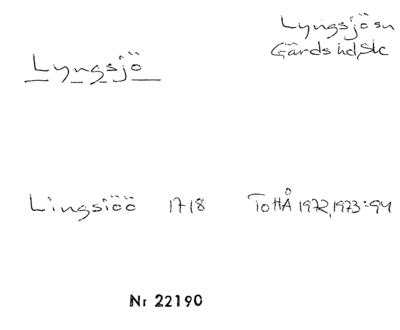 Lyngsjö sn
Gärds hd, Sk
Lyngsjö
Lingsiöö 1718 ToHÅ 1972, 1973:94
Nr 22190